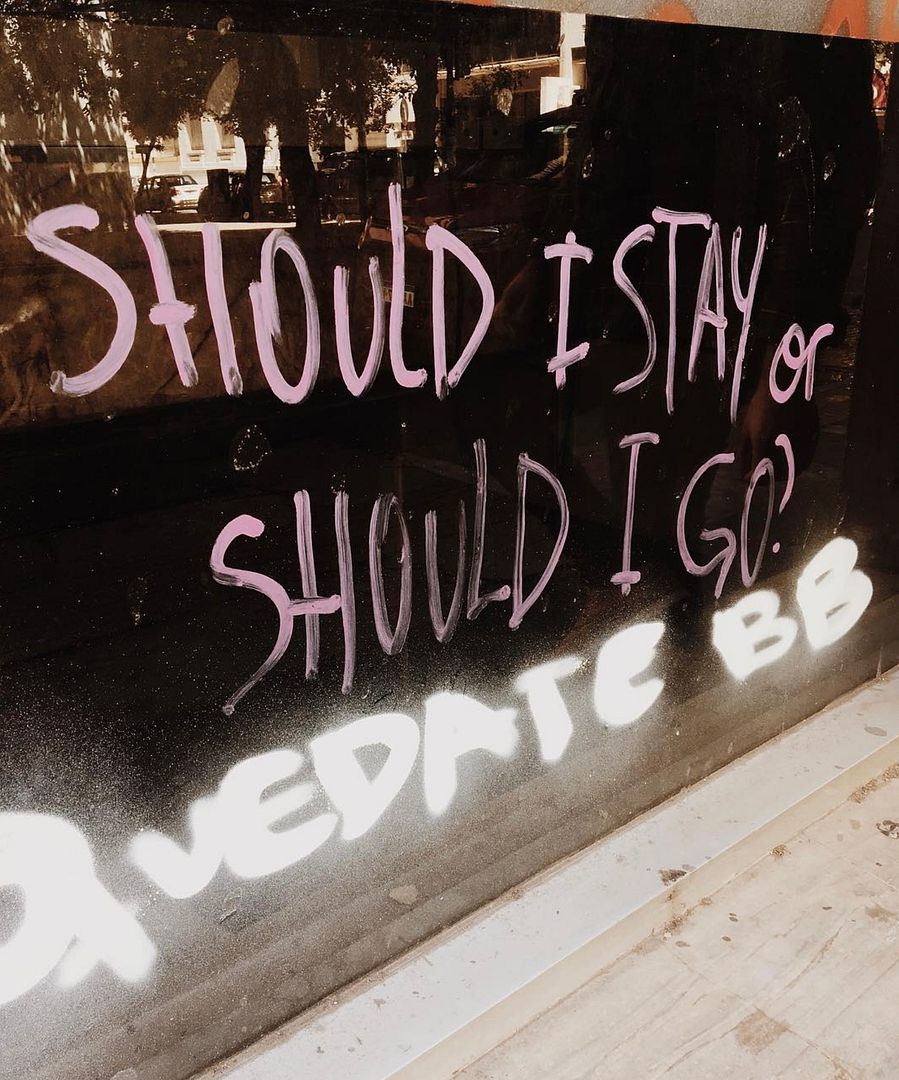 SHOULD I STAY or
SHOULD I GO?
QUEDATE BB